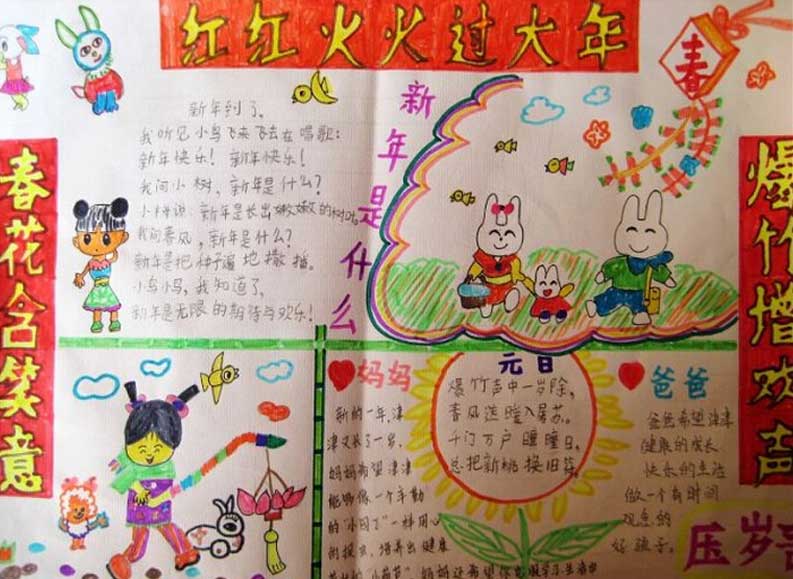 红红火火过大年
春
春花含笑意
爆竹增欢声
新年是什么
新年到了。
我听见小鸟飞来飞去在唱歌：
新年快乐！新年快乐！
我问小树，新年是什么？
小树说：新年是长出嫩嫩的树叶。
我问春风，新年是什么？
新年是把种子遍地撒播。
小鸟小鸟，我知道了，
新年是无限的期待与欢乐！
妈妈
新的一年，津
津又长了一岁，
妈妈希望津津
能够像一个辛勤
的"小园丁"一样用心
元日
爆竹声中一岁除，
春风送暖入屠苏。
千门万户曈曈日，
总把新桃换旧符。
爸爸
爸爸希望津津
健康的成长
快乐的生活
做一个有时间
观念的
好孩子。
压岁